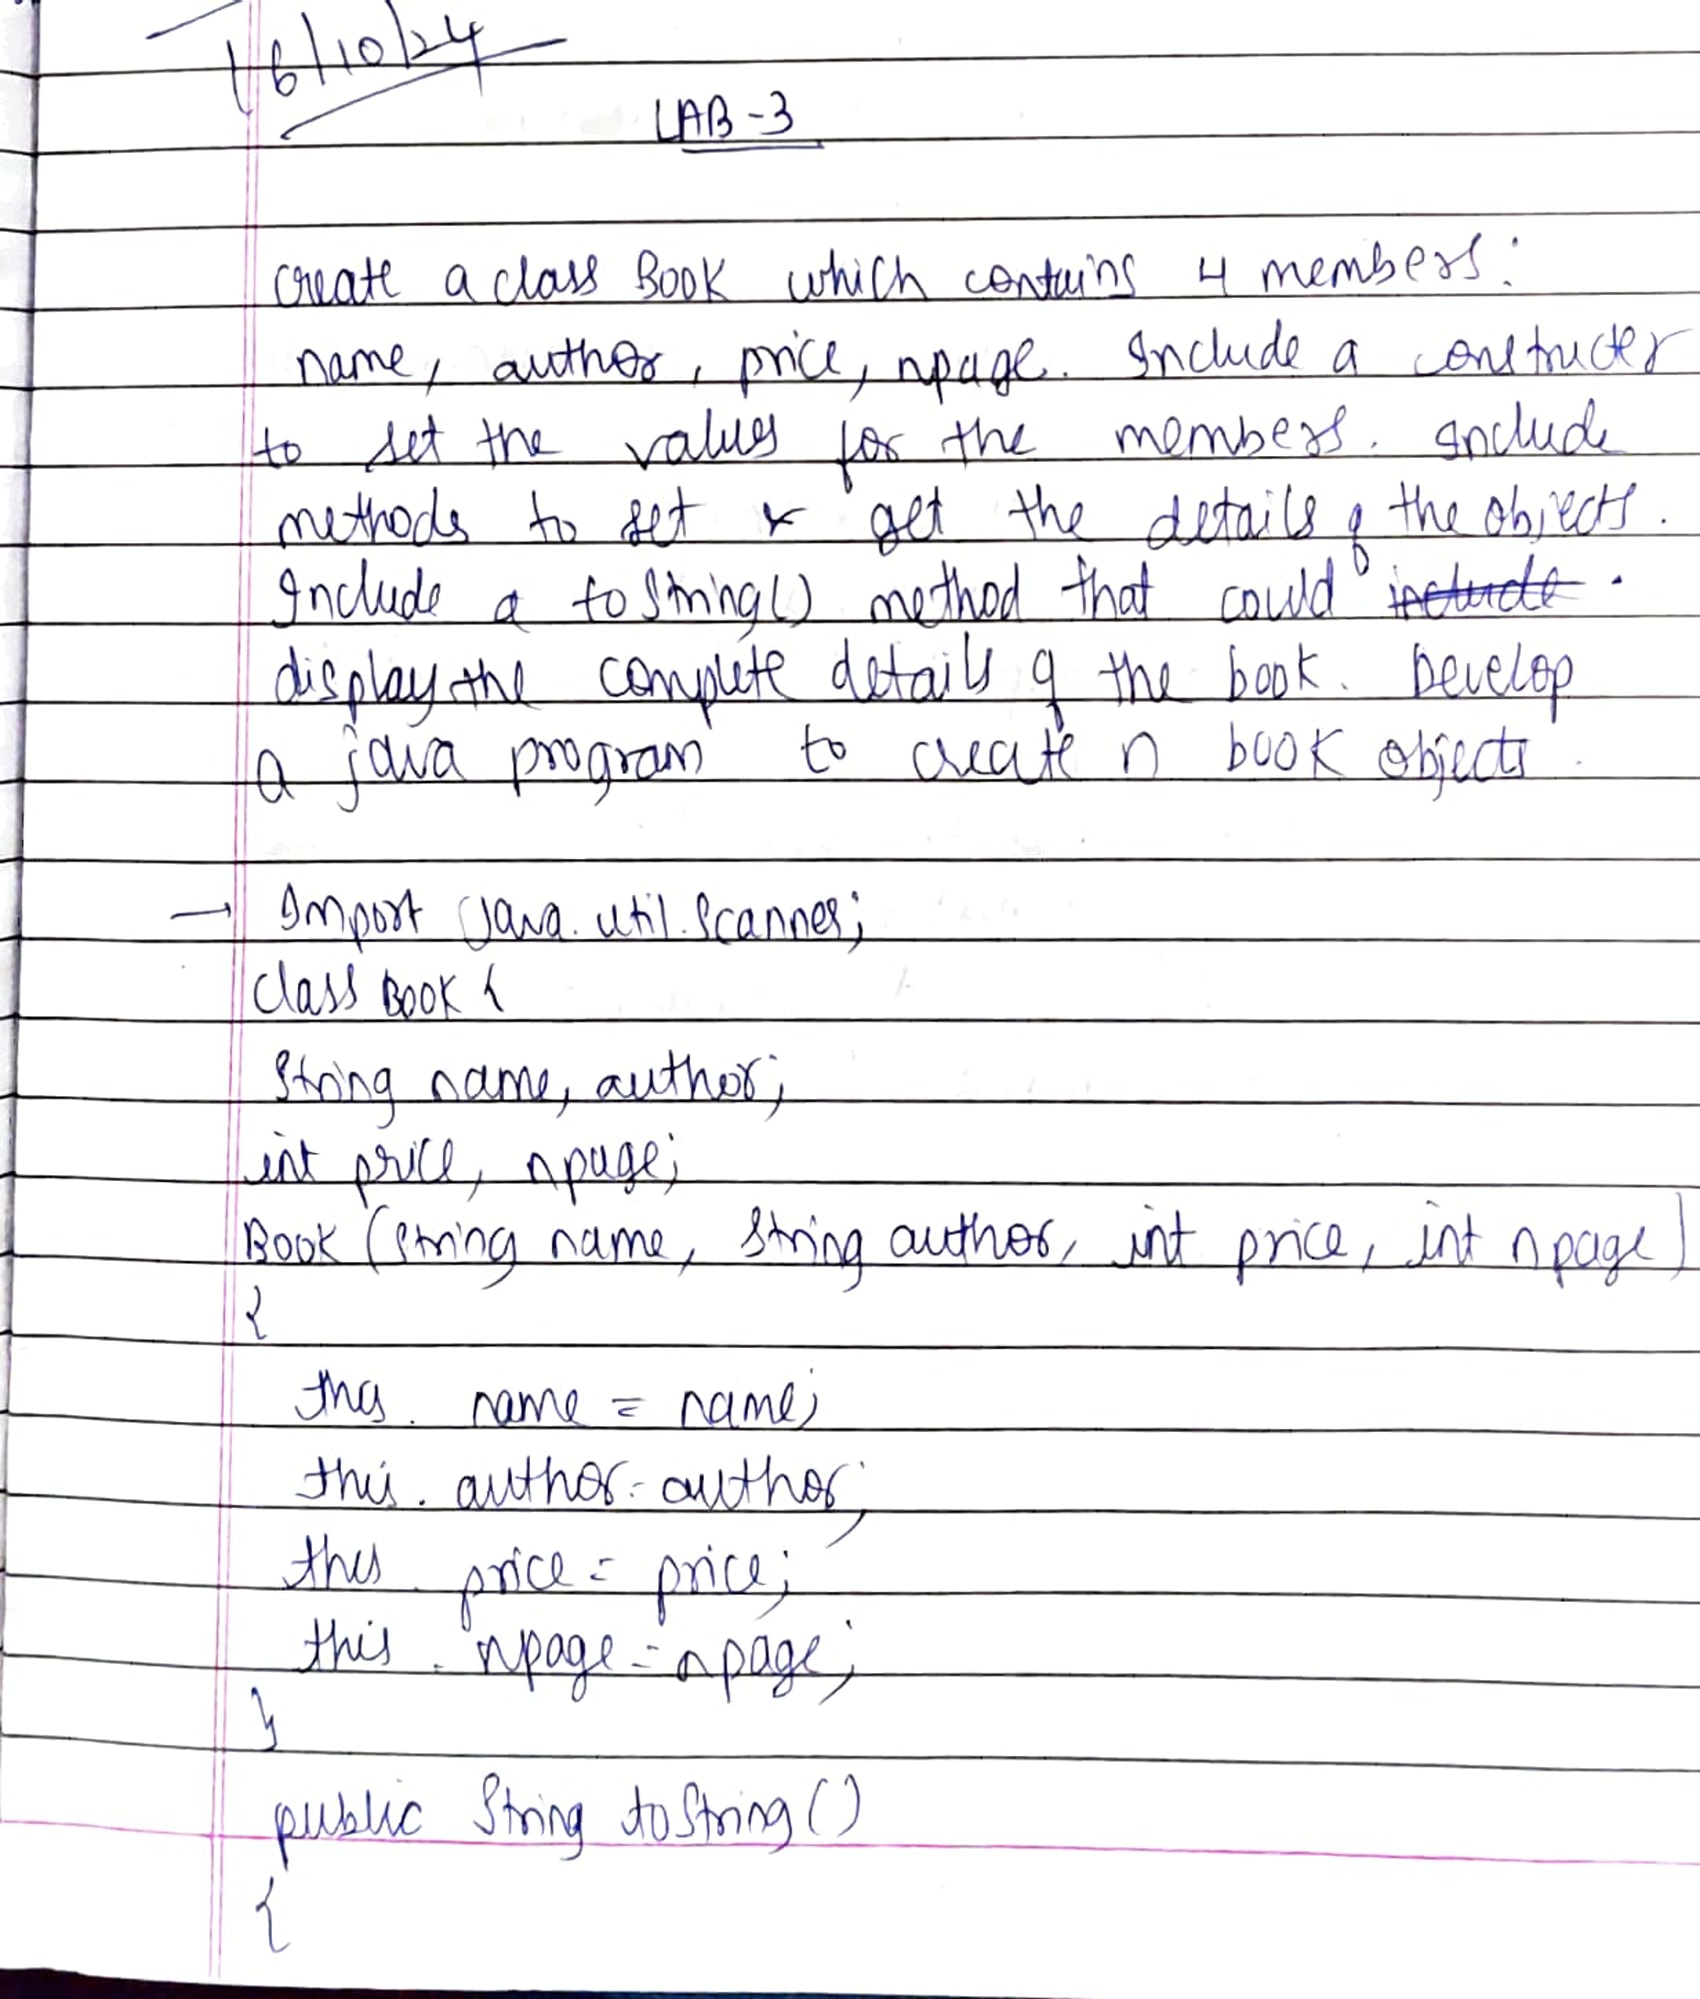 16/10/24
LAB-3
create a class Book which contains 4 members:
name, author, price, npage. Include a constructer
to set the values for the members. Include
methods to set & get the details of the objects.
Include a toString() method that could include.
display the complete details of the book. Develop
a java program to create n book objects.
→ Import Java.util.Scanner;
class Book {
String name, author;
int price, npage;
Book (String name, String author, int price, int npage)
{
this. name = name;
this. author = author;
this. price = price;
this. npage = npage;
}
public String toString()
{